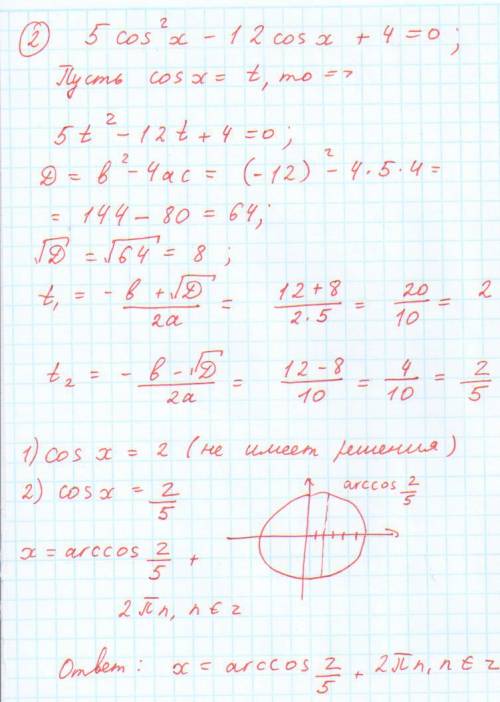 2 5 cos²x - 12 cos x + 4 = 0;
Пусть cos x = t, то =>
5t² - 12t + 4 = 0;
Д = в² - 4ас = (-12)² - 4*5*4 =
= 144 - 80 = 64;
√Д = √64 = 8;
t₁ = - в + √Д / 2а = 12 + 8 / 2*5 = 20/10 = 2
t₂ = - в - √Д / 2а = 12 - 8 / 10 = 4/10 = 2/5
1) cos x = 2 (не имеет решения)
2) cos x = 2/5
arccos 2/5
x = arccos 2/5 +
2πn, n ∈ z
Ответ: x = arccos 2/5 + 2πn, n ∈ z